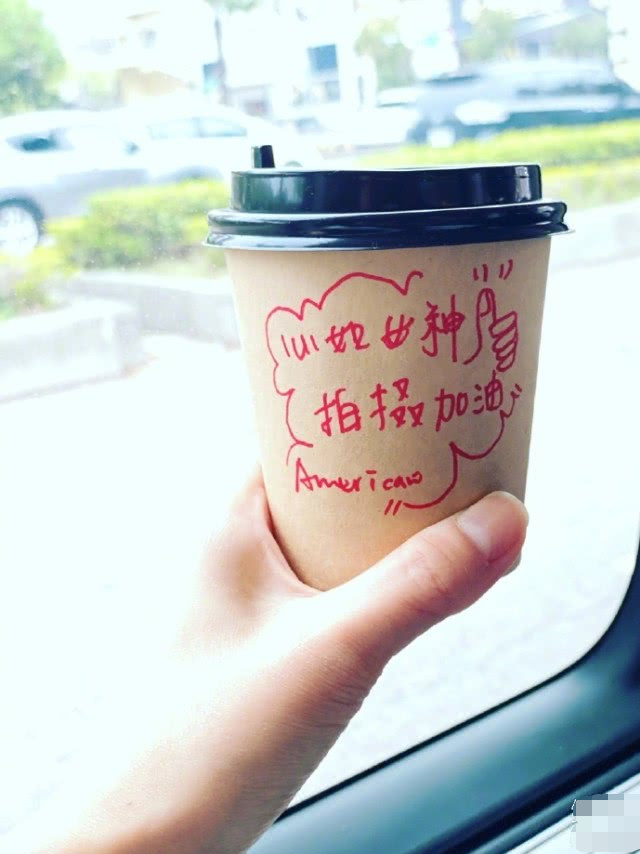 心女神
拍摄加油
Americano